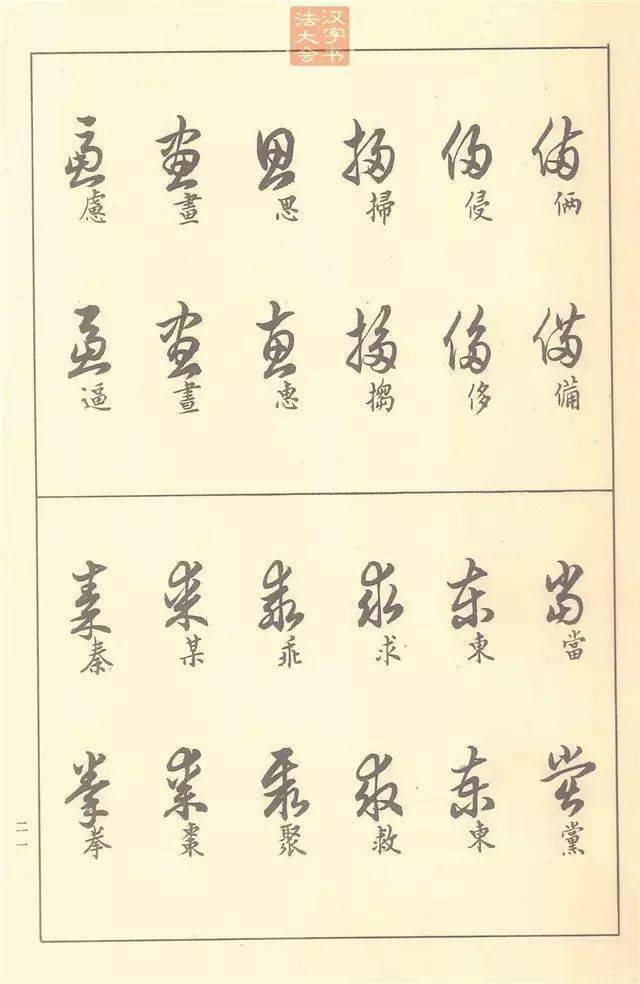 汉字书
法大会
俩 備
侵 侈
掃 搊
思 惠
畫 晝
慮 逼
當 黨
東 東
求 救
乖 聚
某 棗
秦 拳
二一